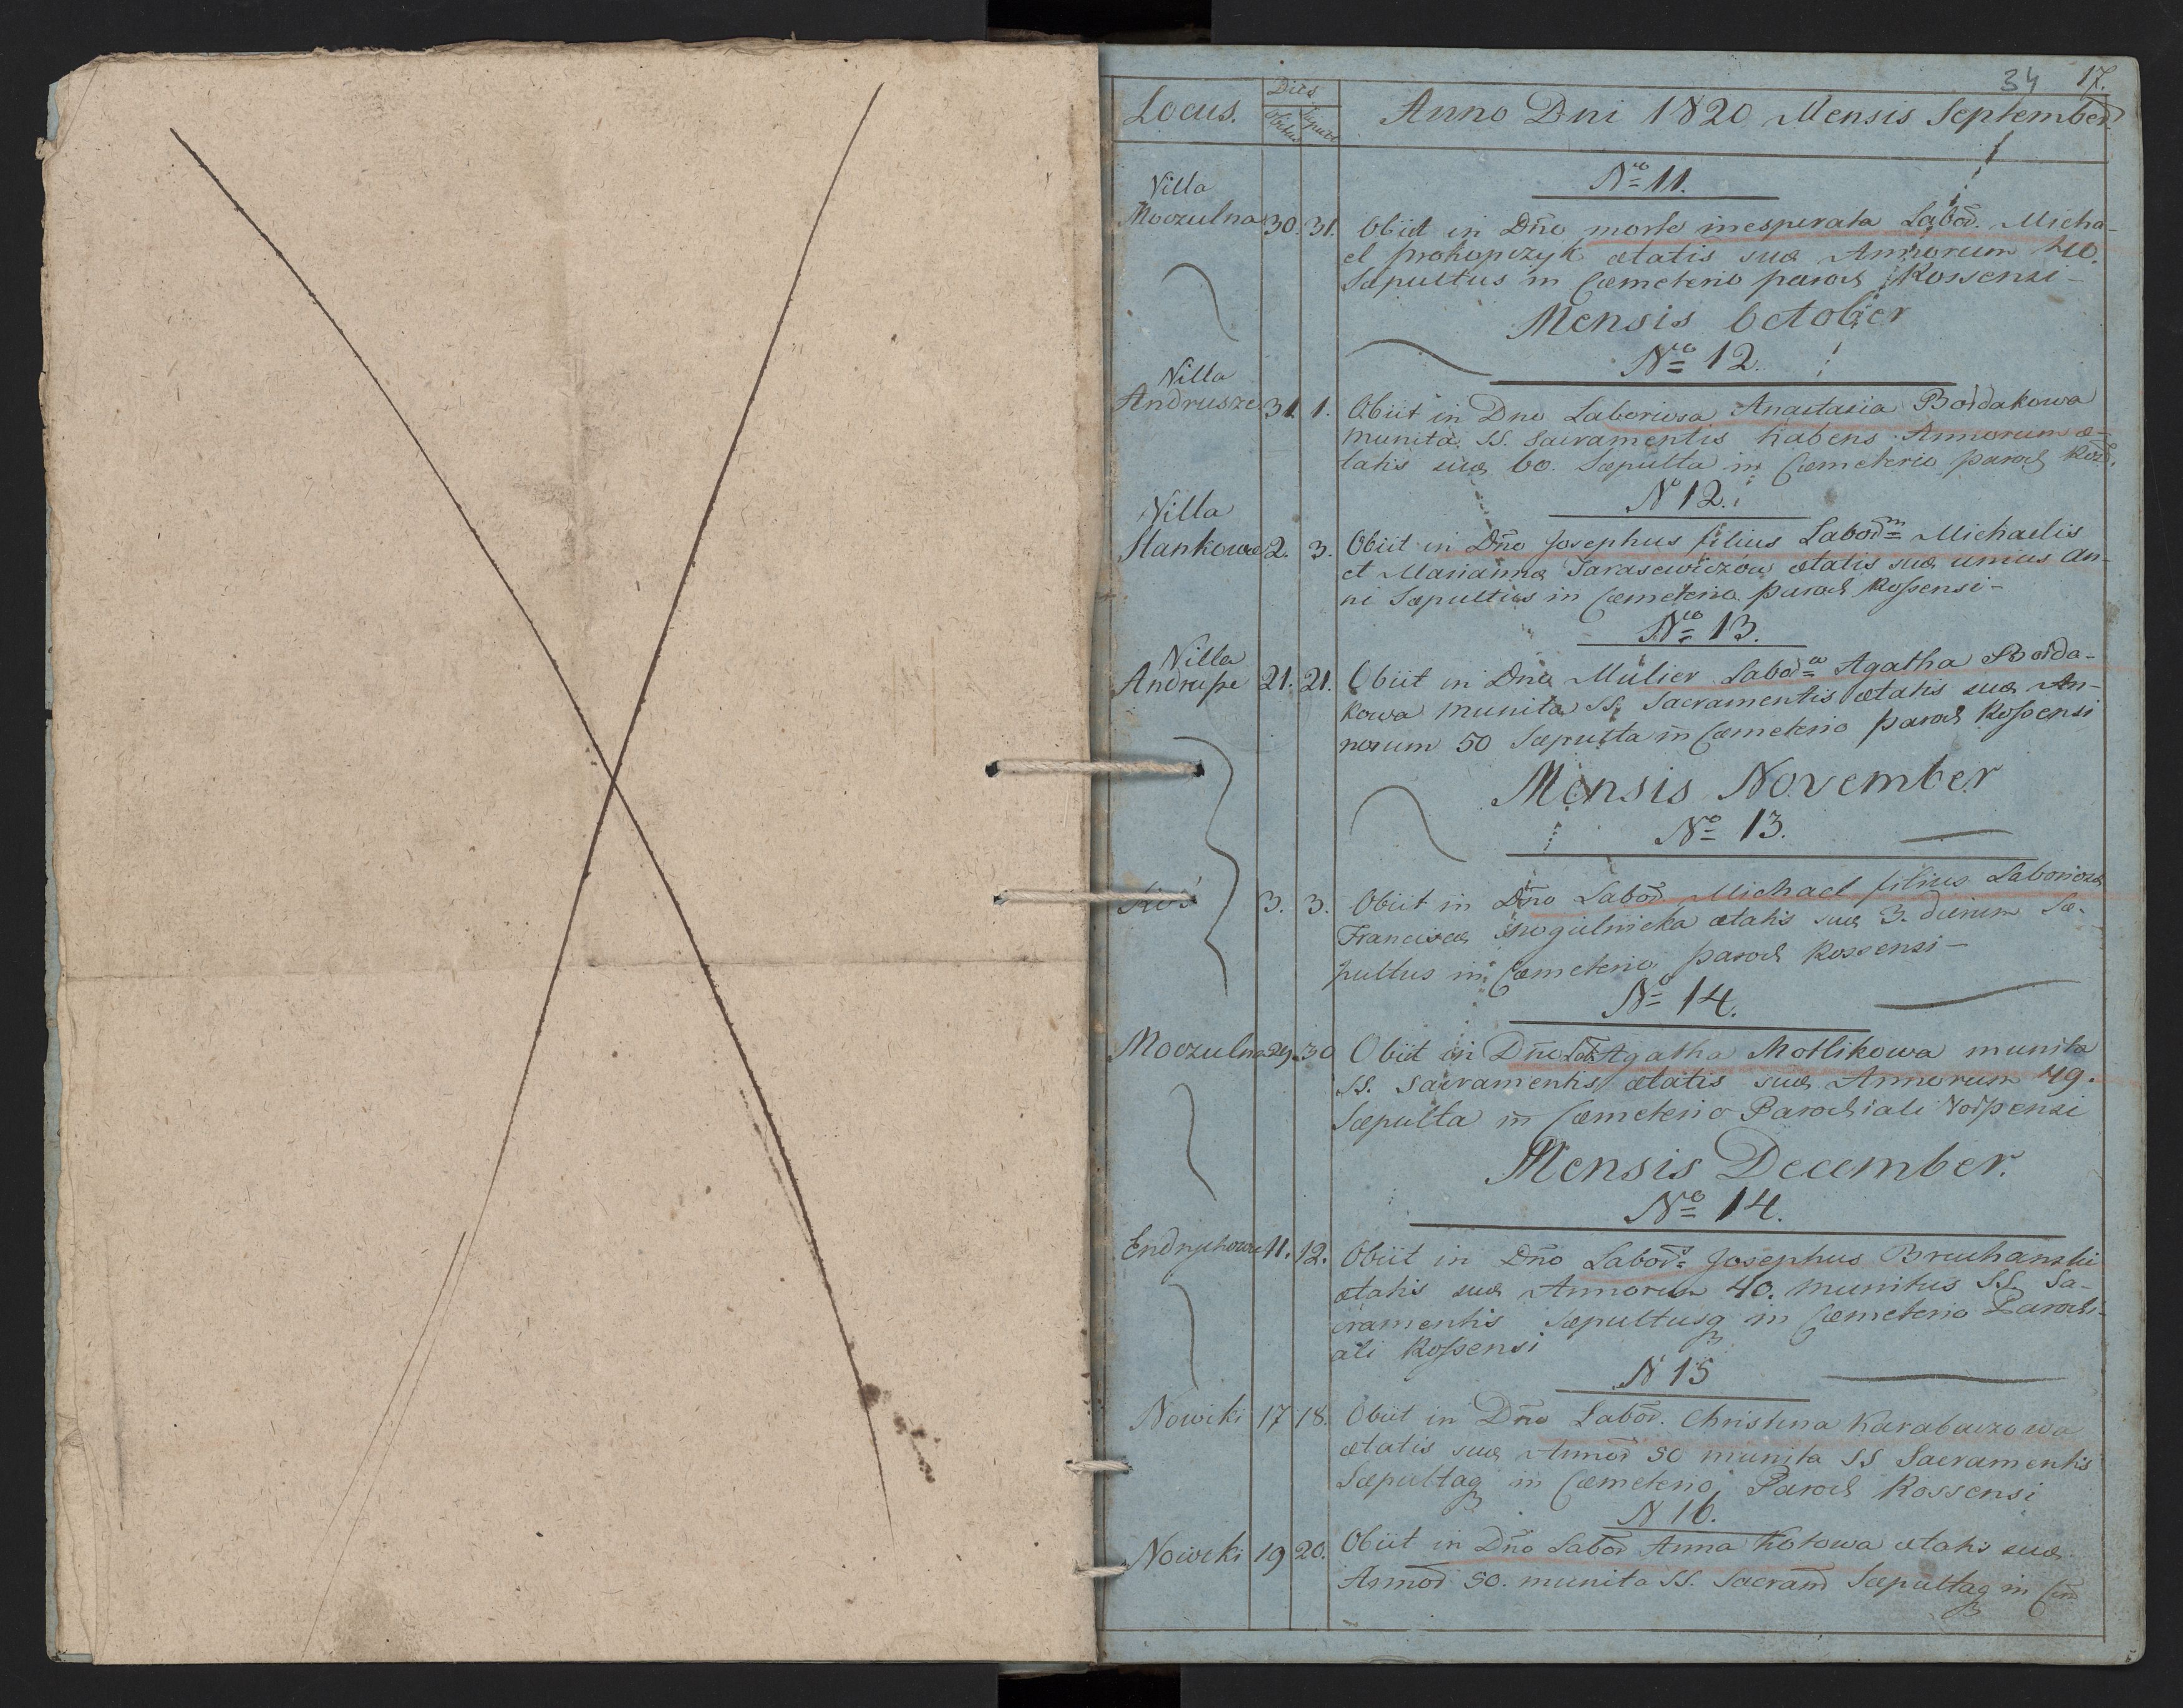 34 17.
Locus. Dies Obitus Sepult Anno Dni 1820 Mensis September.
No 11.
Villa
Moczulna 30. 31. Obiit in Dno morte insperata Labor. Micha-
el Prokopczyk ætatis suæ Annorum 40.
Sæpultus in Cæmeterio paroch Rossensi -
Mensis October
No 12.
Villa
Andrusze 31. 1. Obiit in Dno Laboriosa Anastasia Bordakowa
munita SS. Sacramentis habens Annorum æ-
tatis suæ 60. Sæpulta in Cæmeterio paroch
No 12.
Villa
Stankowce 2. 3. Obiit in Dno Josephus filius Laborm Michaelis
et Mariannæ Tarasewiczow ætatis suæ unius an-
ni Sæpultus in Cæmeterio paroch Rossensi -
No 13.
Villa
Andrusze 21. 21. Obiit in Dno Mulier Labora Agatha Borda-
kowa munita SS. Sacramentis ætatis suæ An-
norum 50 Sæpulta in Cæmeterio paroch Rossensi
Mensis November
No 13.
Roś 3. 3. Obiit in Dno Labor Michael filius Laboriosæ
Franciscæ ætatis suæ 3. dierum Sæ-
pultus in Cæmeterio paroch Rossensi -
No 14.
Moczulna 29. 30 Obiit in Dno Lab. Agatha Motlikowa munita
SS. Sacramentis ætatis suæ Annorum 49.
Sæpulta in Cæmeterio Parochiali
Mensis December.
No 14.
Endrychowce 11. 12. Obiit in Dno Labors Josephus Bruchanski
ætatis suæ Annorum 40. munitus SS. Sa-
cramentis Sæpultusq in Cæmeterio Parochi-
ali Rossensi
N 15
Nowiki 17 18. Obiit in Dno Labor. Christina Karabaczowa
ætatis suæ Annor 50 munita SS Sacramentis
Sæpultaq in Cæmeterio Paroch Rossensi
N 16.
Nowiki 19 20. Obiit in Dno Labor Anna Kotowa ætatis suæ
Annor 50. munita SS. Sacram Sæpultaq in Cæm